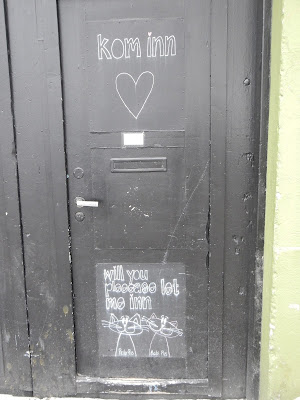 kom inn
will you
pleeease let
me inn